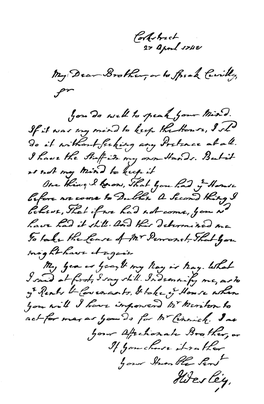 Corkstreet
27 April 1748
My Dear Brother, or to speak Civilly,
Sr
You do well to speak your Mind.
If it was my mind to keep the House, I shd
do it without seeking any Pretence at all.
I have the staff in my own Hands. But it
is not my Mind to keep it
One thing I know, That you had ye House
before we come to Dublin A Second thing I
believe, That if we had not come, you wd
have had it still. And this determined me
To take the Lease of Mr Perronet, That you
might have it again
My Yea is Yea, & my Nay is Nay. What
I said at first, I say still Indemnify me, as to
ye Rents & Covenants, & take ye House when
you will I have impowered Mr
to
act for me as you do for Mr Cennick. I am
Your Affectionate Brother, or
If you chuse it rather
Your Humble Servt
JWesley.